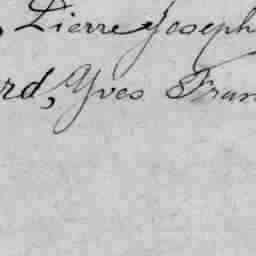 , Pierre Joseph
rd, Yves Fran